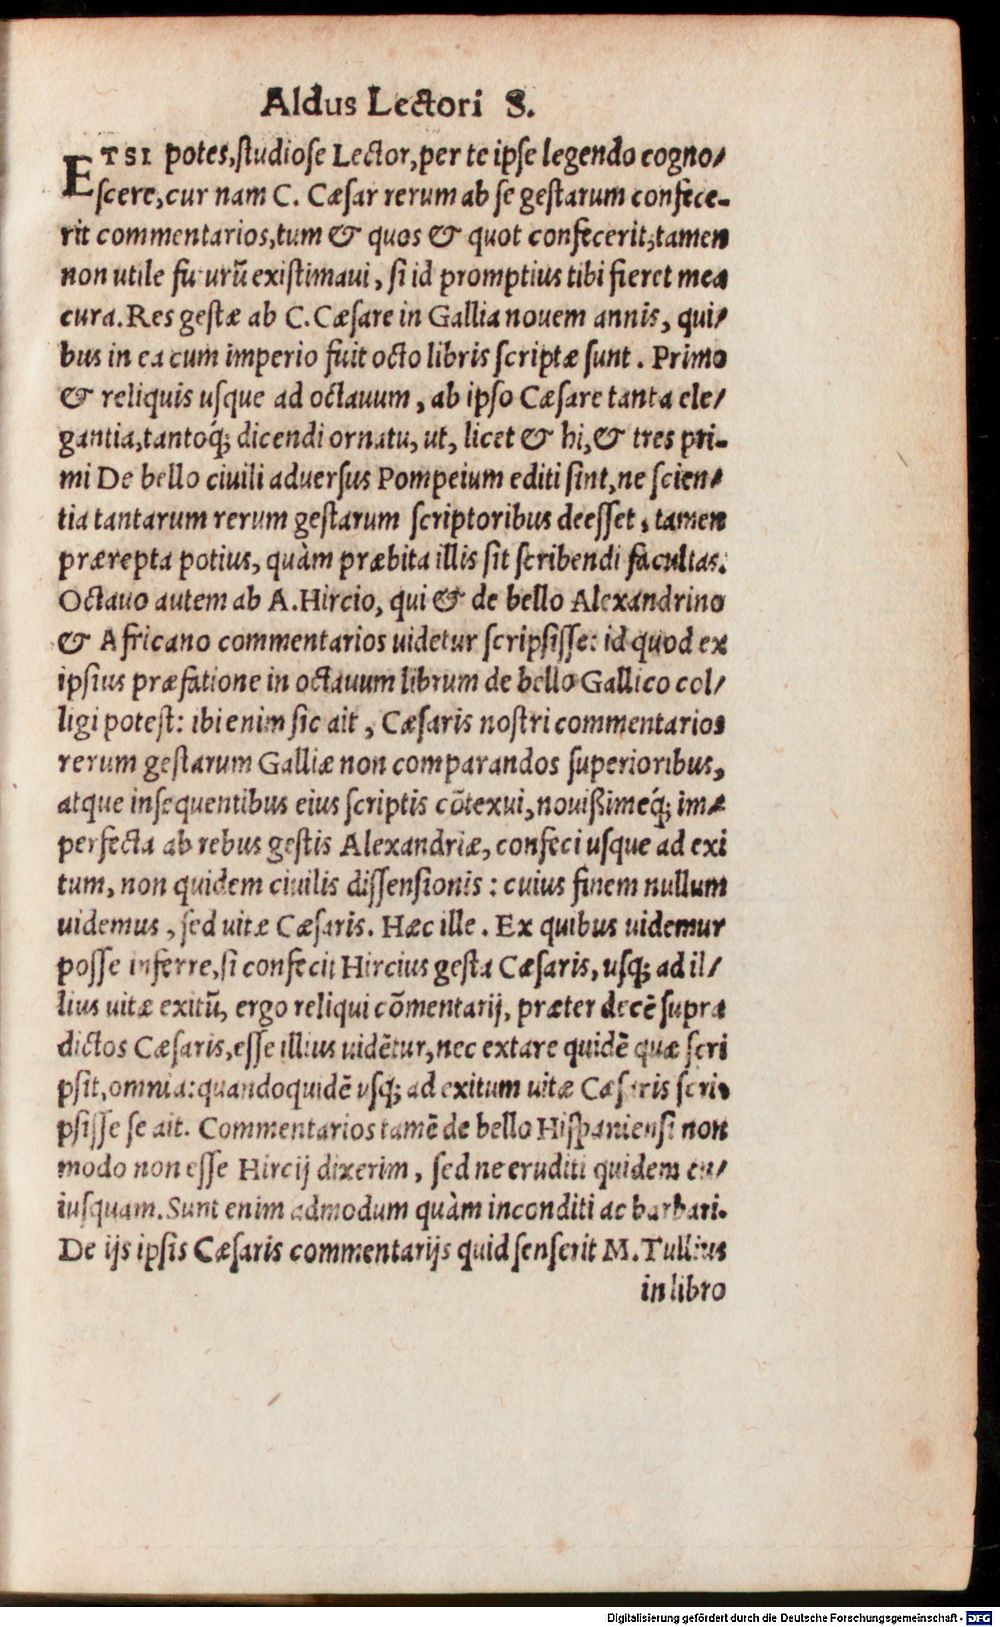 Aldus Lectori S.
ETSI potes, studiose Lector, per te ipse legendo cogno/
scere, cur nam C. Cæsar rerum ab se gestarum confece-
rit commentarios, tum & quos & quot confecerit; tamen
non utile futurũ existimaui, si id promptius tibi fieret mea
cura. Res gestæ ab C. Cæsare in Gallia nouem annis, qui/
bus in ea cum imperio fuit octo libris scriptæ sunt. Primo
& reliquis usque ad octauum, ab ipso Cæsare tanta ele/
gantia, tantoq́; dicendi ornatu, ut, licet & hi, & tres pri-
mi De bello ciuili aduersus Pompeium editi sint, ne scien/
tia tantarum rerum gestarum scriptoribus deesset, tamen
prærepta potius, quàm præbita illis sit scribendi facultas.
Octauo autem ab A. Hircio, qui & de bello Alexandrino
& Africano commentarios uidetur scripsisse: id quod ex
ipsius præfatione in octauum librum de bello Gallico col/
ligi potest: ibi enim sic ait, Cæsaris nostri commentarios
rerum gestarum Galliæ non comparandos superioribus,
atque insequentibus eius scriptis cõtexui, nouißimeq́; im/
perfecta ab rebus gestis Alexandriæ, confeci usque ad exi
tum, non quidem ciuilis dissensionis: cuius finem nullum
uidemus, sed uitæ Cæsaris. Hæc ille. Ex quibus uidemur
posse inferre, si confecit Hircius gesta Cæsaris, usq; ad il/
lius uitæ exitũ, ergo reliqui cõmentarij, præter decẽ supra
dictos Cæsaris, esse illius uidẽtur, nec extare quidẽ quæ scri
psit, omnia: quandoquidẽ usq; ad exitum uitæ Cæsaris scri-
psisse se ait. Commentarios tamẽ de bello Hispaniensi non
modo non esse Hircij dixerim, sed ne eruditi quidem cu/
iusquam. Sunt enim admodum quàm inconditi ac barbari.
De ijs ipsis Cæsaris commentarijs quid senserit M. Tullius
in libro
Digitalisierung gefördert durch die Deutsche Forschungsgemeinschaft - DFG